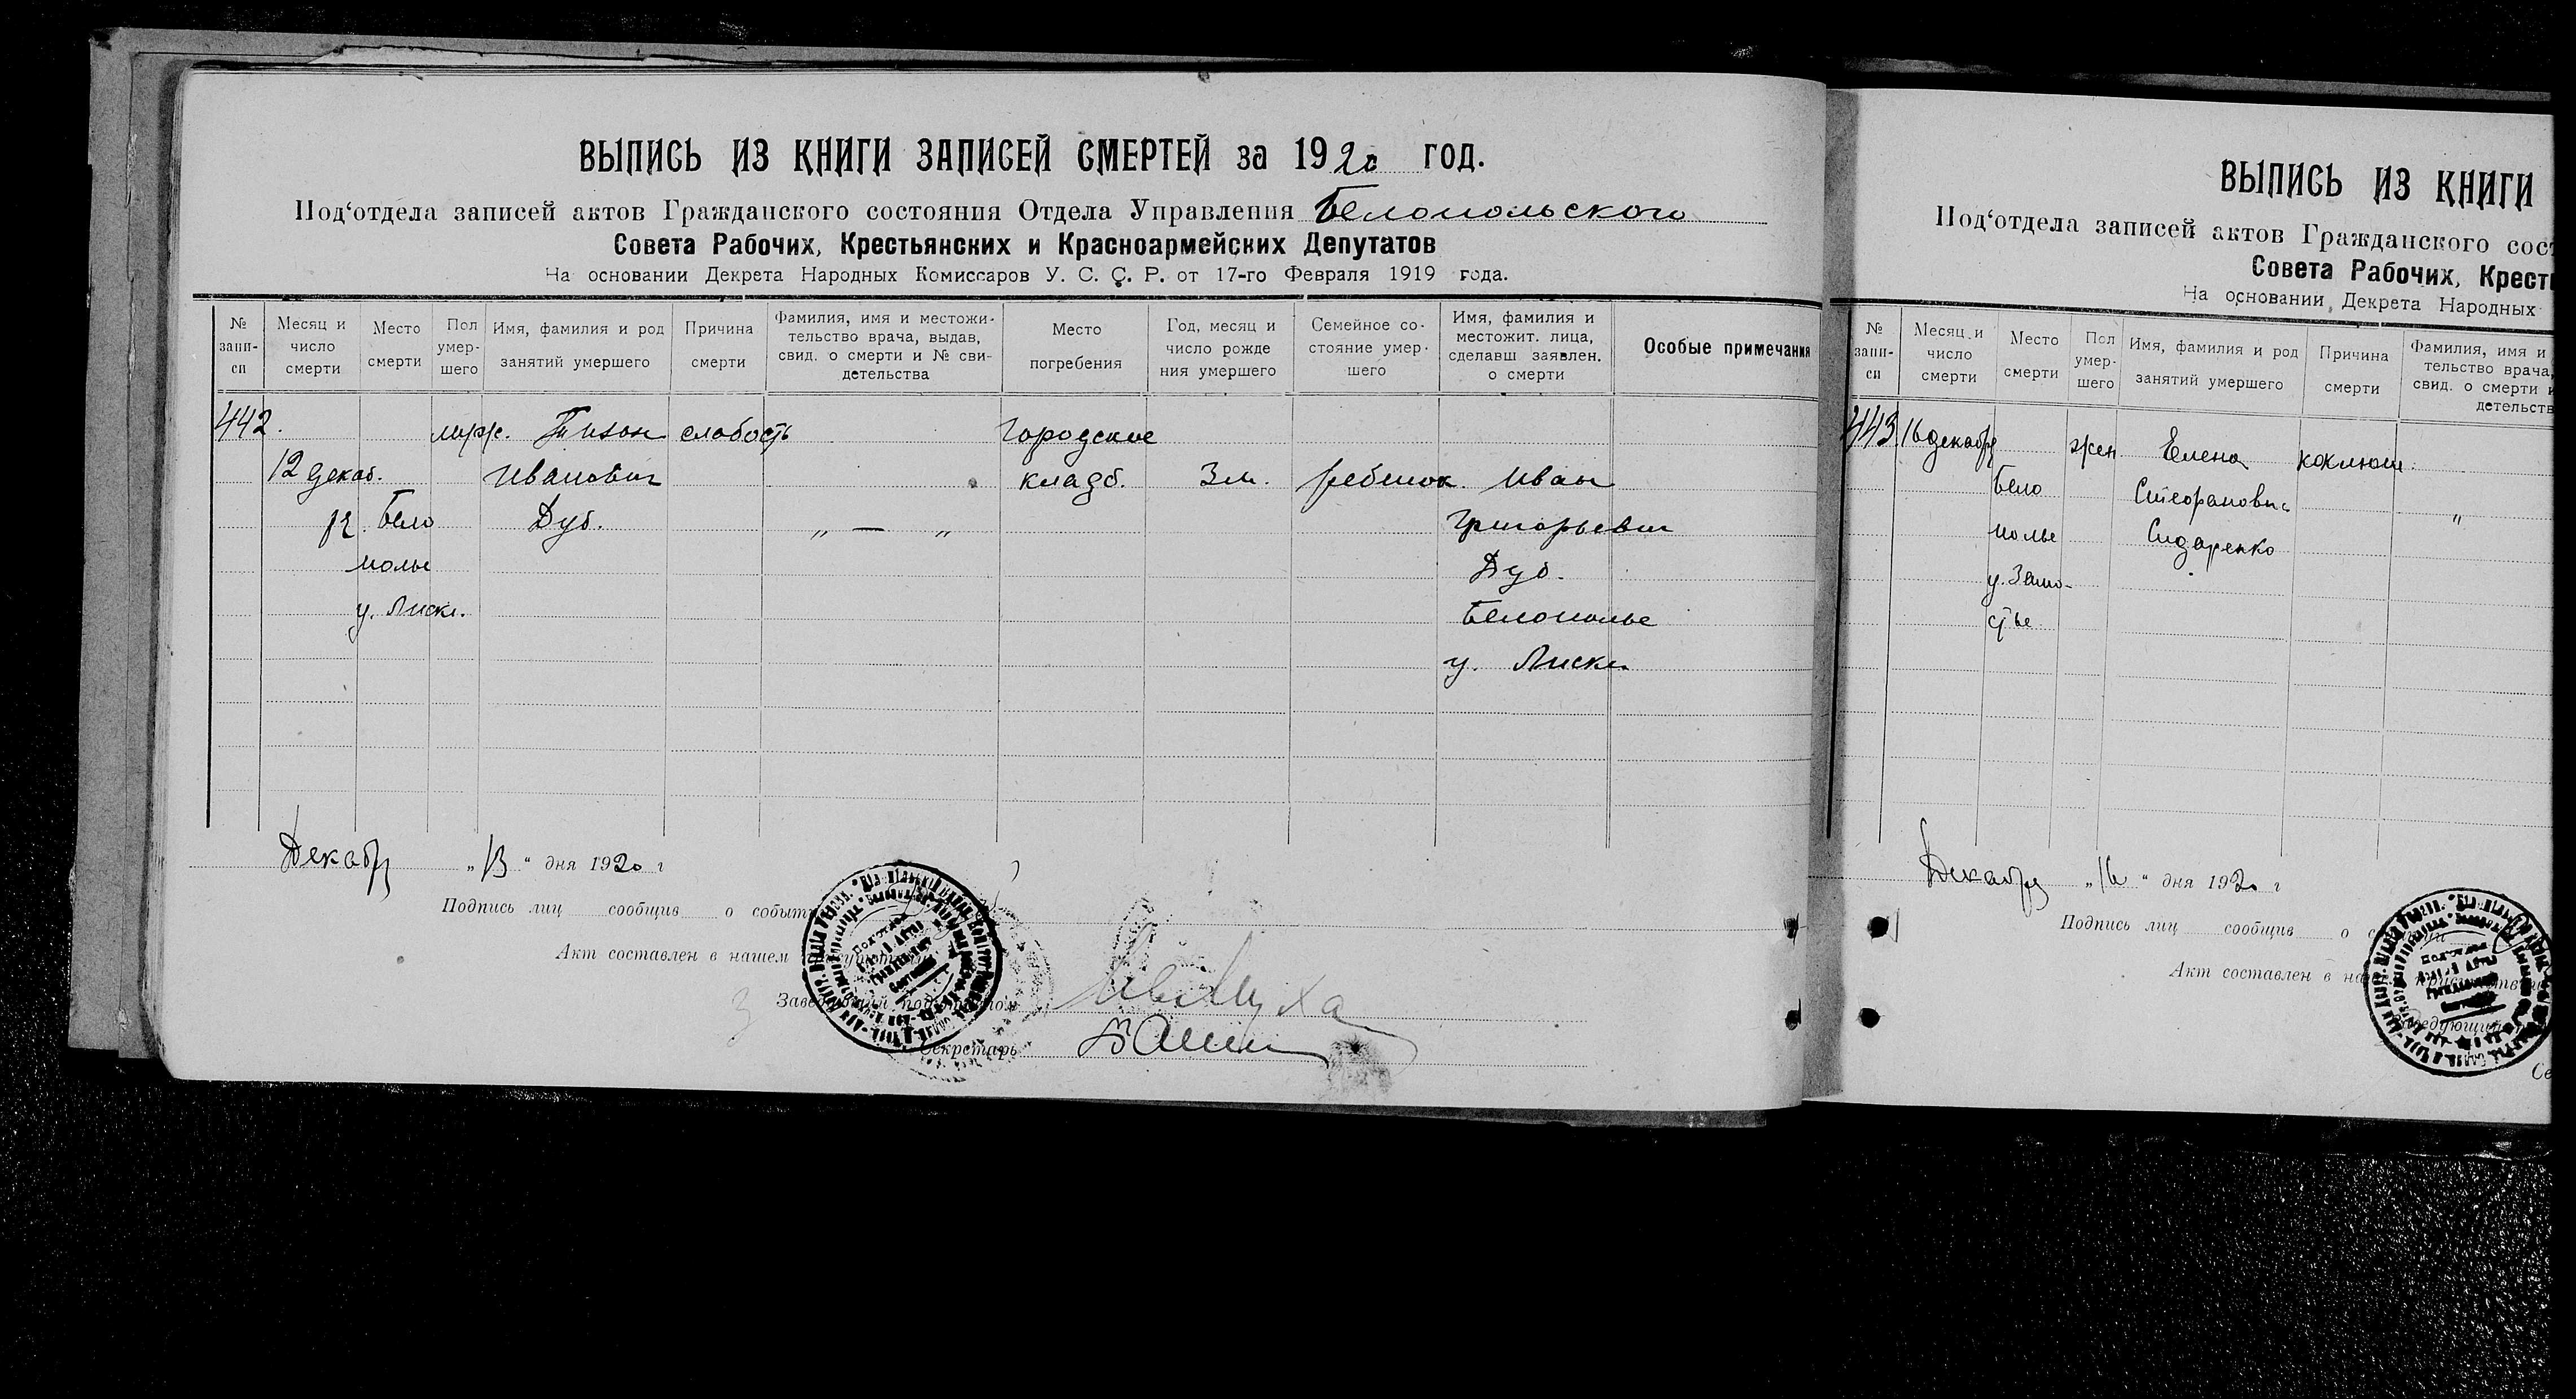 ВЫПИСЬ ИЗ КНИГИ ЗАПИСЕЙ СМЕРТЕЙ за 1920 год.
Под‘отдела записей актов Гражданского состояния Отдела Управления Белопольского
Совета Рабочих, Крестьянских и Красноармейских Депутатов
На основании Декрета Народных Комиссаров У. С. С. Р. от 17-го Февраля 1919 года.
№ запи-си
Месяц и число смерти
Место смерти
Пол умер-шего
Имя, фамилия и род занятий умершего
Причина смерти
Фамилия, имя и местожи-тельство врача, выдав, свид. о смерти и № сви-детельства
Место погребения
Год, месяц и число рожде ния умершего
Семейное со-стояние умер-шего
Имя, фамилия и местожит. лица, сделавш заявлен. о смерти
Особые примечания
442. муж. Тихон слабость Городское
12 декаб. Иванович кладб. 3 м. ребенок. Иван
ря Бело Дуб. „ — „ Григорьевич
полье Дуб.
у. Лиски. Белополье
у. Лиски
Декабря „13“ дня 1920 г
Подпись лиц сообщив о событ
Акт составлен в нашем
Секретарь
ВЫПИСЬ ИЗ КНИГИ
Под‘отдела записей актов Гражданского сост
Совета Рабочих, Крестья
На основании Декрета Народных
№ запи-си
Месяц и число смерти
Место смерти
Пол умер-шего
Имя, фамилия и род занятий умершего
Причина смерти
Фамилия, имя и тельство врача, свид. о смерти и детельств
443. 16 декабря жен Елена коклюш.
Бело Стефановна „
полье Сидаренко
у. Замо-
стье
Декабря „16“ дня 1920 г
Подпись лиц сообщив о с
Акт составлен в на
Се